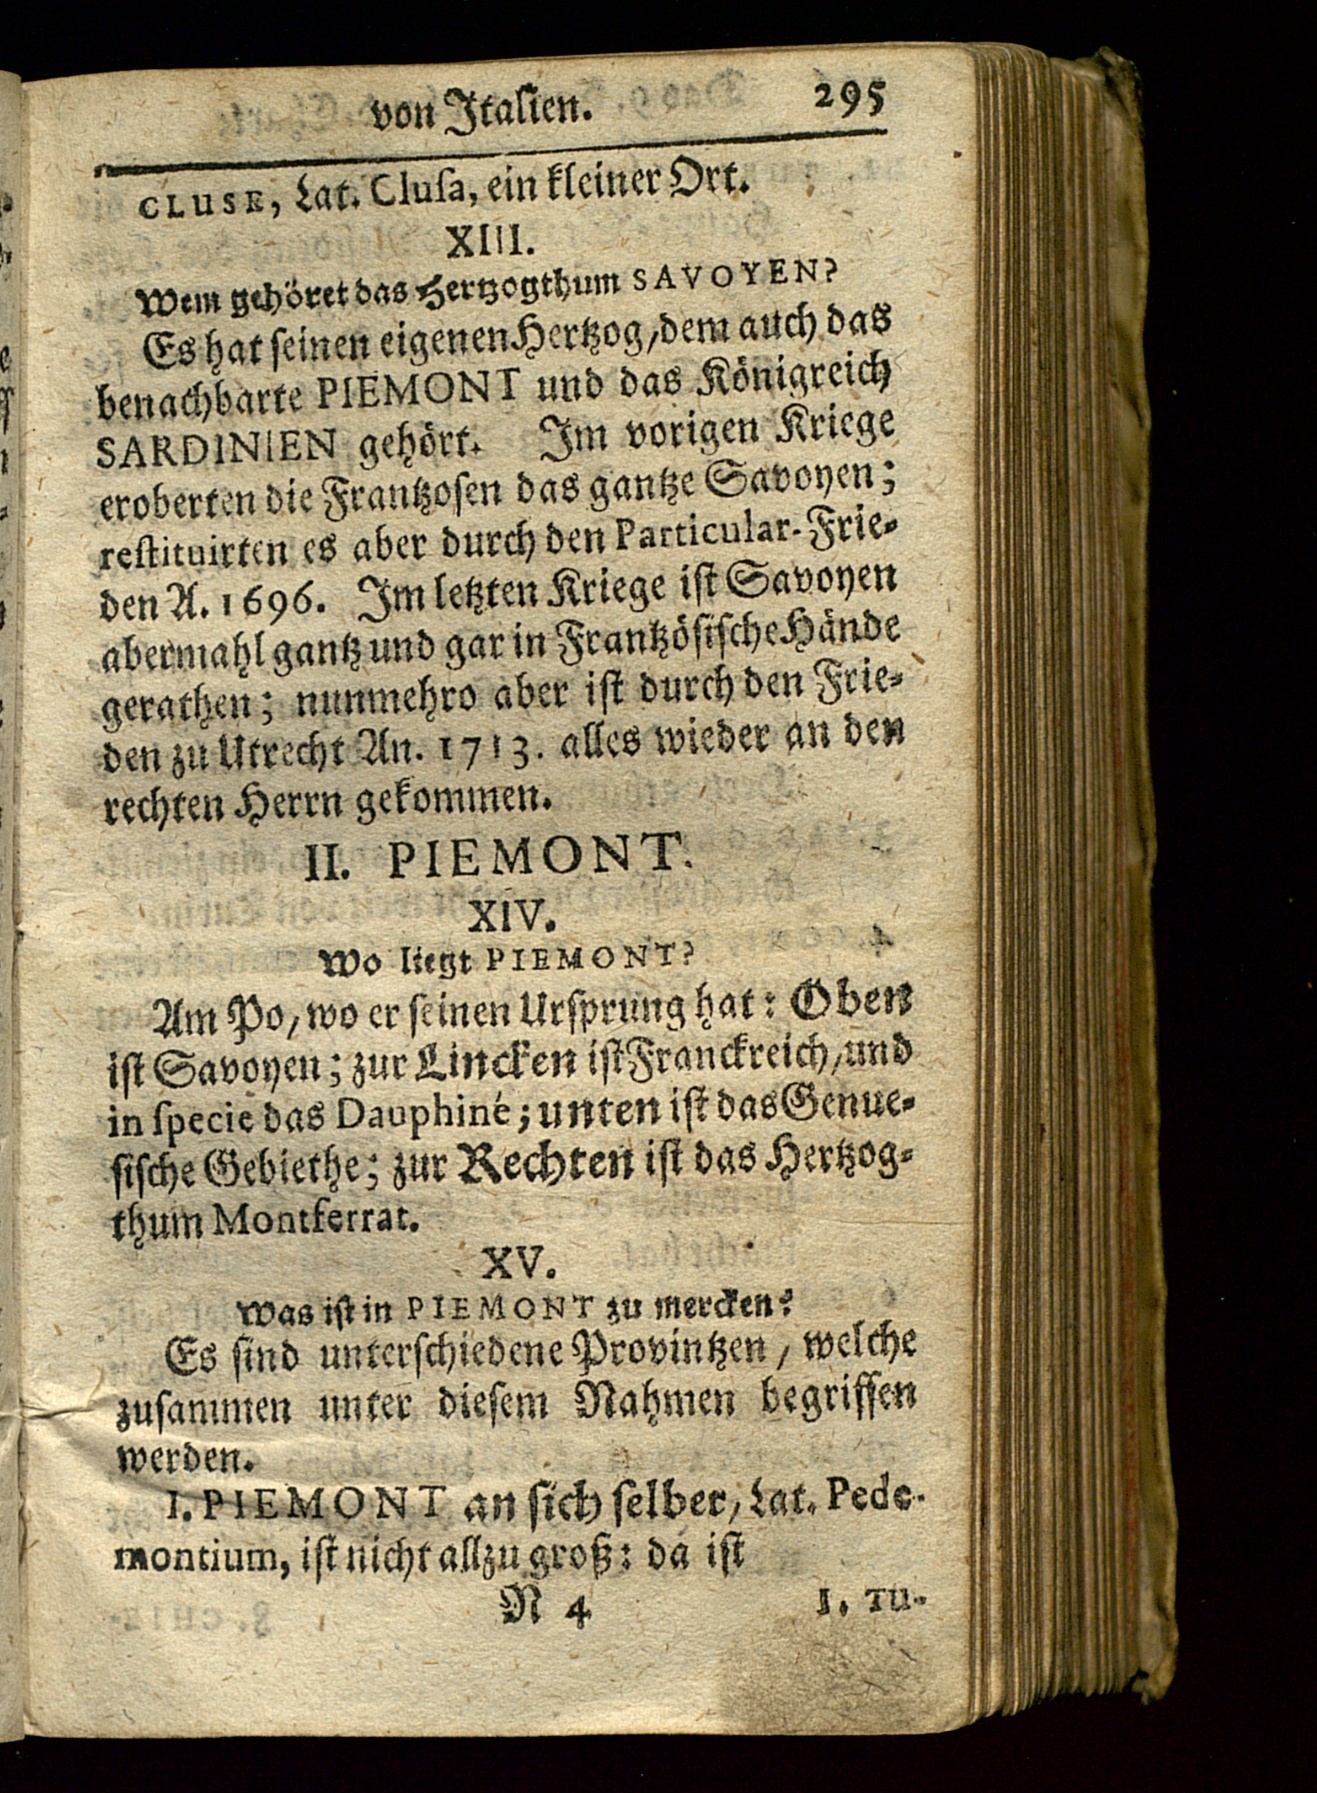 von Italien. 295
CLUSE, Lat. Clusa, ein kleiner Ort.
XIII.
Wem gehöret das Hertzogthum SAVOYEN?
Es hat seinen eigenen Hertzog, dem auch das
benachbarte PIEMONT und das Königreich
SARDINIEN gehört. Im vorigen Kriege
eroberten die Frantzosen das gantze Savoyen;
restituirten es aber durch den Particular-Frie-
den A. 1696. Im letzten Kriege ist Savoyen
abermahl gantz und gar in Frantzösische Hände
gerathen; nunmehro aber ist durch den Frie-
den zu Utrecht An. 1713. alles wieder an den
rechten Herrn gekommen.
II. PIEMONT.
XIV.
Wo liegt PIEMONT?
Am Po, wo er seinen Ursprung hat: Oben
ist Savoyen; zur Lincken ist Franckreich, und
in specie das Dauphiné; unten ist das Genue-
sische Gebiethe; zur Rechten ist das Hertzog-
thum Montferrat.
XV.
Was ist in PIEMONT zu mercken?
Es sind unterschiedene Provintzen, welche
zusammen unter diesem Nahmen begriffen
werden.
I. PIEMONT an sich selber, Lat. Pede-
montium, ist nicht allzu groß: da ist
N 4 1. TU-